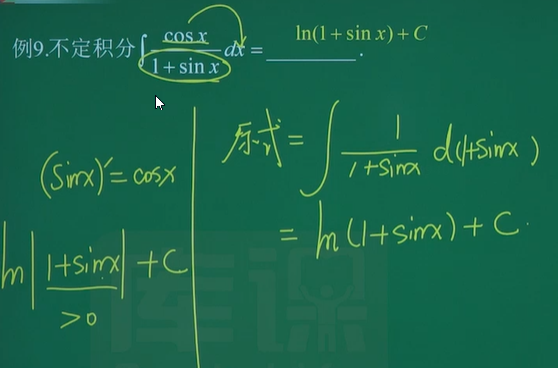 例9.不定积分∫ cos x / (1 + sin x) dx = ________. ln(1 + sin x) + C
(sinx)′ = cosx
ln|1+sinx| + C
>0
原式 = ∫ 1/(1+sinx) d(1+sinx)
= ln(1+sinx) + C.
库课